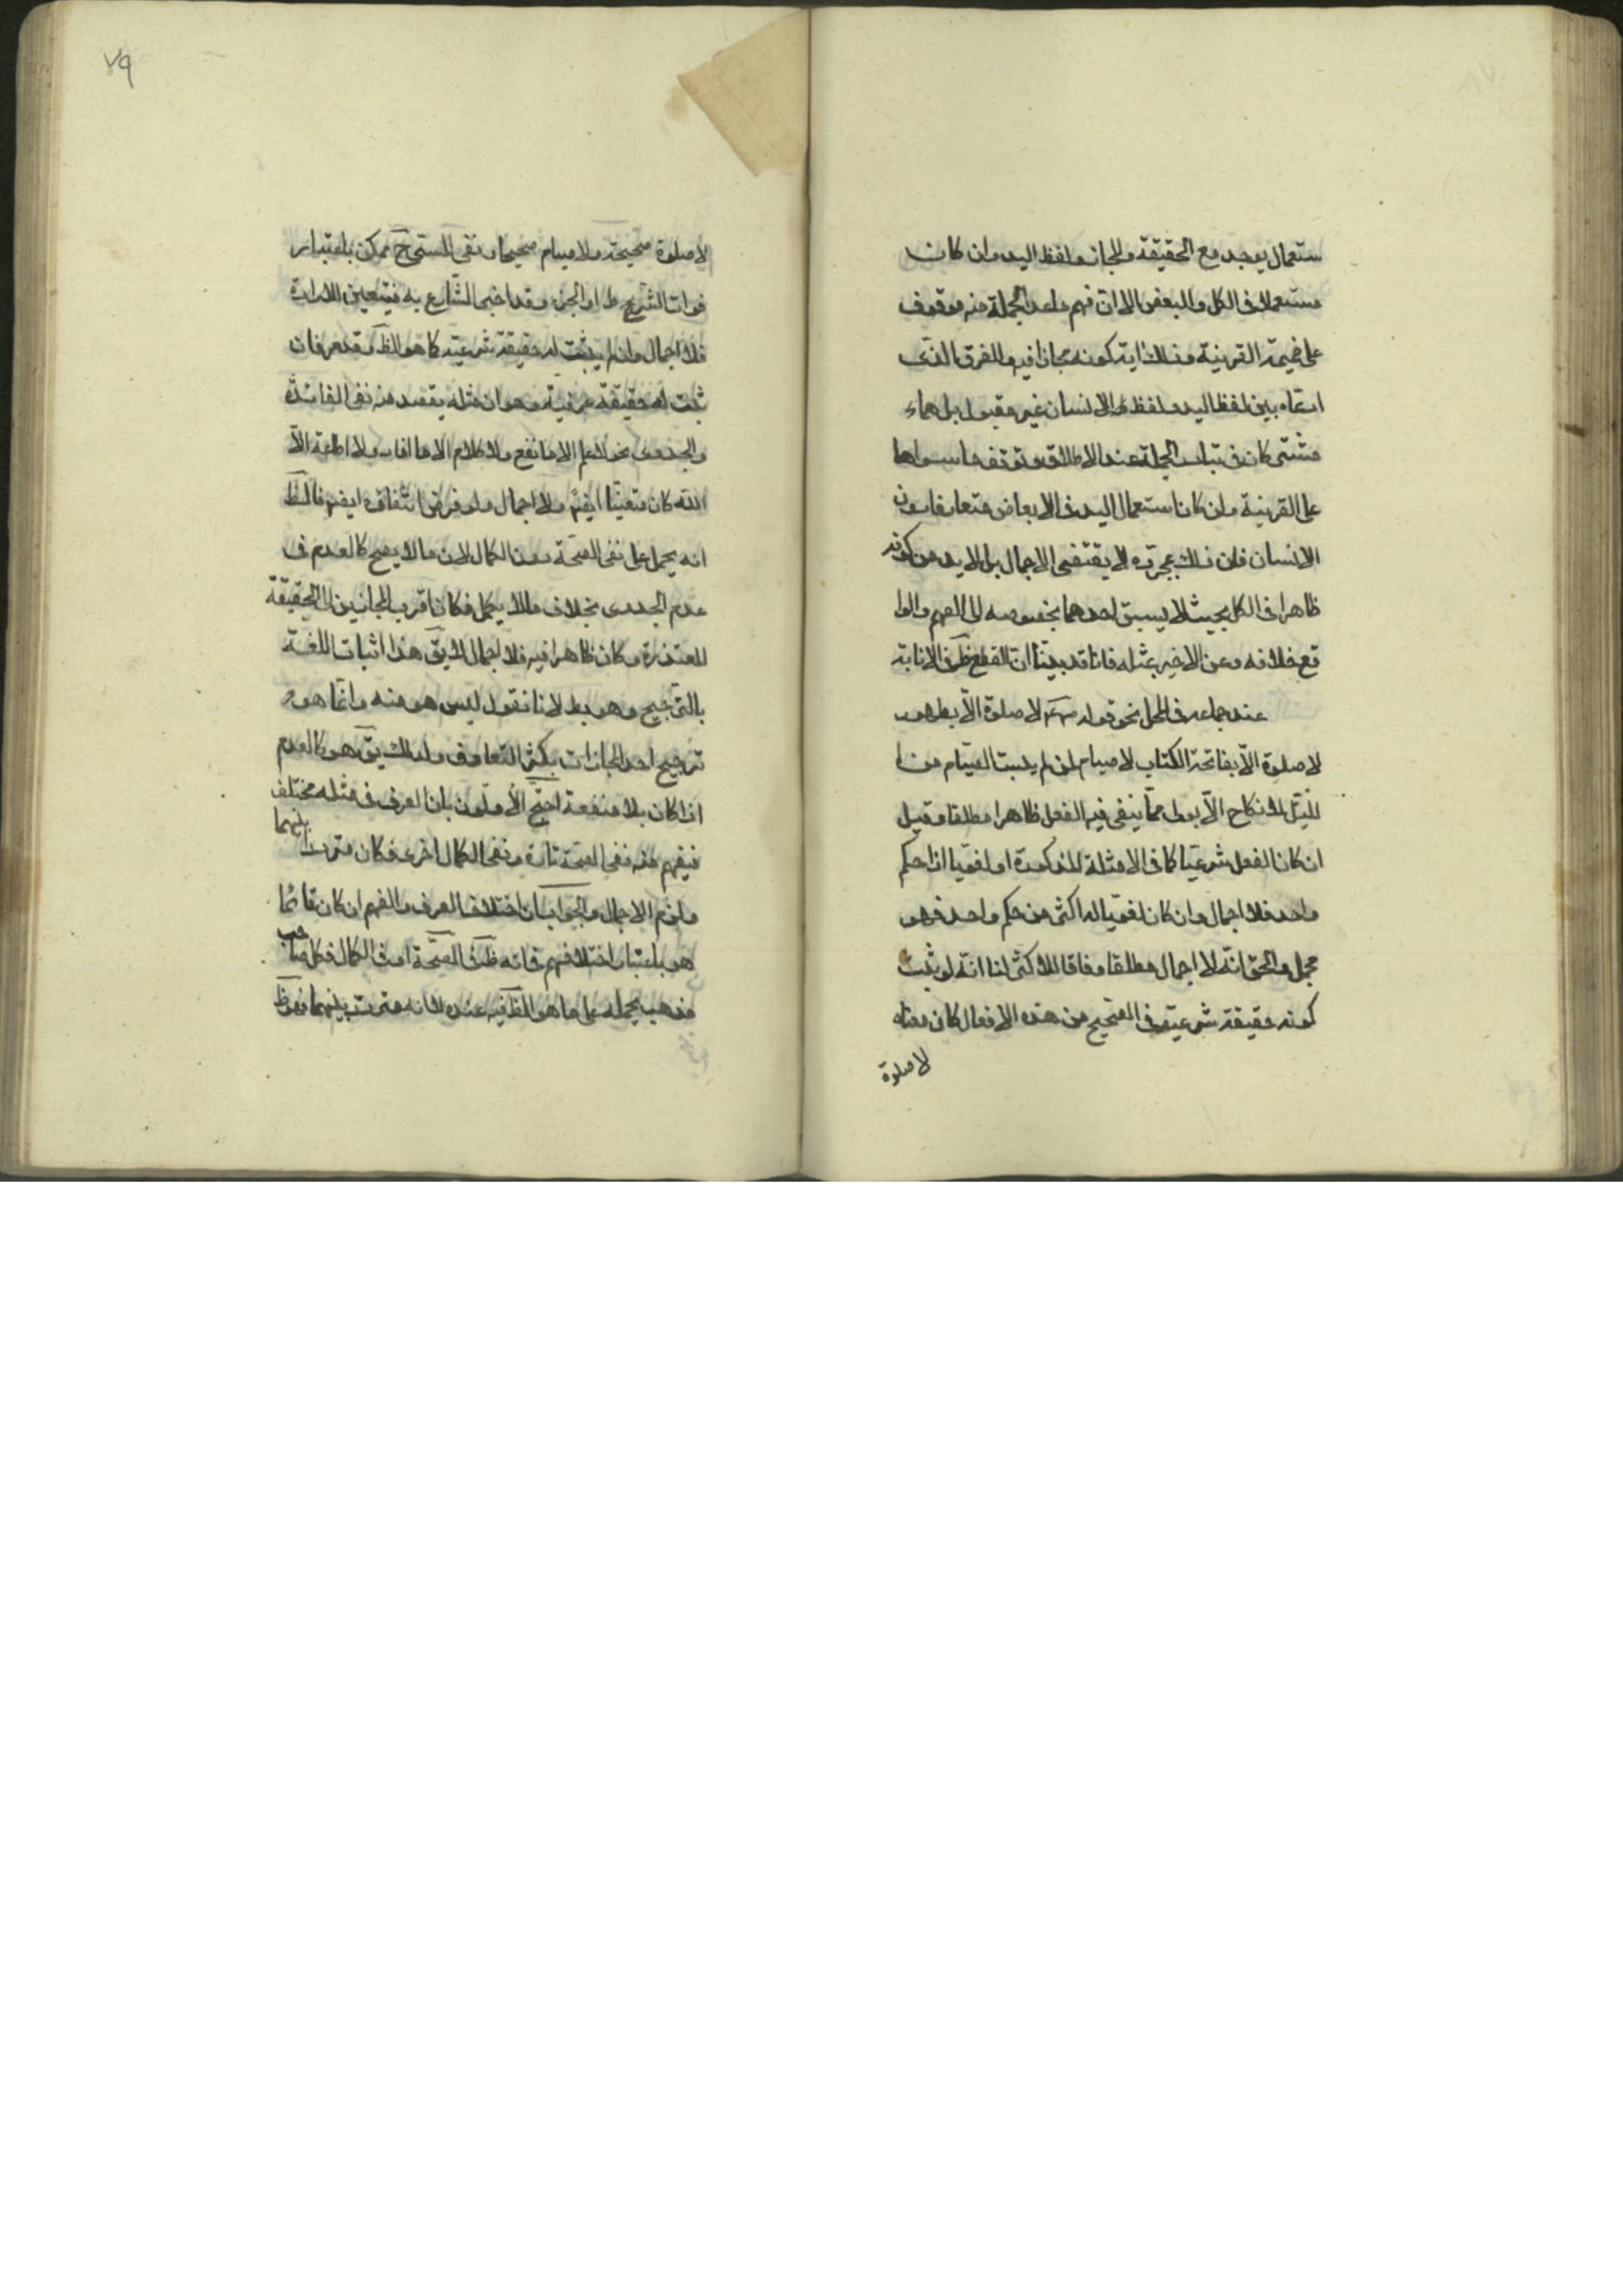 ستعمال يوجد مع الحقيقة والمجاز ولفظ اليد وان كان
مستعملا فى الكل والبعض الا ان فهم ماعدا الجملة منه موقوف
على ضميمة القرينة وذلك اية كونه مجازا فيه والفرق الذى
ادعاه بين لفظ اليد ولفظ الانسان غير مقبول بل هماء
مشتركان فى تبادر الجملة عند الاطلاق وتوقف ماسواها
على القرينة وان كان استعمال اليد فى الابعاض متعارفا دون
الانسان فان ذلك بمجرده لا يقتضى الاجمال بل لا بد من كونه
ظاهرا فى الكل بحيث لا يسبق احدهما بخصوصه الى الفهم والوا
قع خلافه وعن الاخير بمثله فانا قد بينا ان القطع ظ فى الابانة
عند جماعه فى المجمل نحو قوله لا صلوة الا بطهور
لا صلوة الا بفاتحة الكتاب لا صيام لمن لم يبيت الصيام من ا
لليل لا نكاح الا بولى مما ينفى فيه الفعل ظاهرا مطلقا وقيل
ان كان الفعل شرعيا كما فى الامثلة المذكورة او لغويا ذا حكم
واحد فلا اجمال وان كان لغويا له اكثر من حكم واحد فهو
مجمل والحق انه لا اجمال مطلقا وفاقا للاكثر لنا انه لو ثبت
كونه حقيقة شرعية فى الصحيح من هذه الافعال كان معناه
لا صلوة
٧٩
لا صلوة صحيحة ولا صيام صحيحا ونفى المسمى ح ممكن باعتبار
فوات الشرط او الجزء وقد اخبر الشارع به فيتعين للارادة
فلا اجمال وان لم يثبت له حقيقة شرعية كما هو الظ وقد مر فان
ثبت له حقيقة عرفية وهو ان مثله يقصد منه نفى الفائدة
والجدوى نحو لا علم الا ما نفع ولا كلام الا ما افاد ولا طاعة الا
لله كان متعينا ايضم ولا اجمال ولو فرض انتفاؤه ايضم فالظ
انه يحمل على نفى الصحة دون الكمال لان ما لا يصح كالعدم فى
عدم الجدوى بخلاف ما لا يكمل فكان اقرب المجازين الى الحقيقة
المتعذرة وكان ظاهرا فيه فلا اجمال لا يق هذا اثبات اللغة
بالترجيح وهو بط لانا نقول ليس هو منه وانما هو
ترجيح احد المجازات بكثرة التعارف ولذلك يق هو كالعدم
اذا كان بلا منفعة احتج الأولون بان العرف فى مثله مختلف
فيفهم منه نفى الصحة تارة ونفى الكمال اخرى فكان مترددا بينهما
ولزم الاجمال والجواب ان اختلاف العرف والفهم ان كان قائما
هو باعتبار اختلافهم فى انه ظ فى الصحة او فى الكمال فكل صاحب
مذهب يحمله على ما هو الظ فيه عنده لا انه متردد بينهما فهو ظ